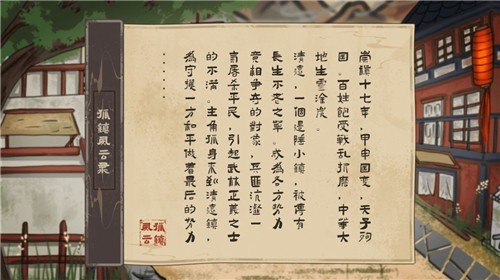 孤鎮風云录
崇禎十七年，甲申國变，天子殉
国。百姓飽受戰乱折磨，中華大
地生靈涂炭。
清遠，一個邊陲小鎮，被傳有
長生不老之藥。成為各方勢力
竞相爭夺的對象，兵匪沆瀣一
氣屠杀平民，引起武林正義之士
的不滿。主角孤身來到清遠鎮，
為守護一方和平做着最后的努力
......
孤鎮
風云